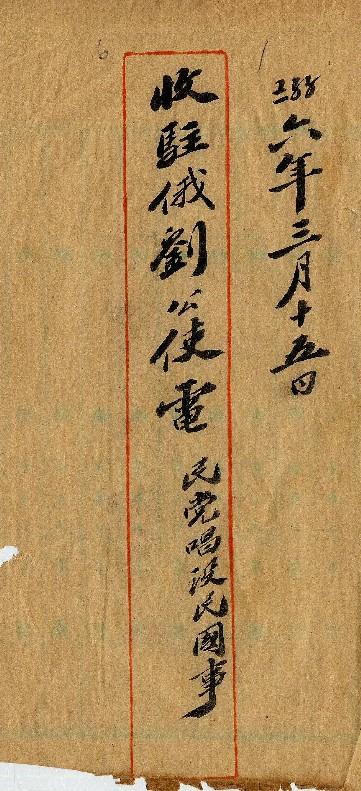 六年三月十五日
收駐俄劉公使電 民党唱設民國事